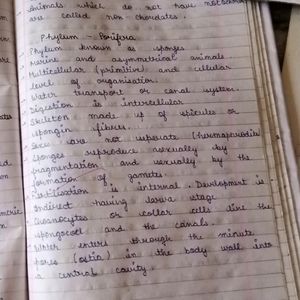 Animals which do not have notochord
are called non chordates.
Phylum - Porifera
Phylum known as sponges
Marine and asymmetrical animals
Multicellular (primitive) and cellular
level of organisation.
Water transport or canal system.
Digestion is intercellular
Skeleton made up of spicules or
spongin fibres.
Sexes are not seperate (hermaphrodite)
Sponges reproduce asexually by
fragmentation and sexually by the
formation of gametes.
Fertilization is internal. Development is
indirect having larva stage
Choanocytes or collar cells line the
spongocoel and the canals.
Water enters through the minute
pores (ostia) in the body wall into
a central cavity.